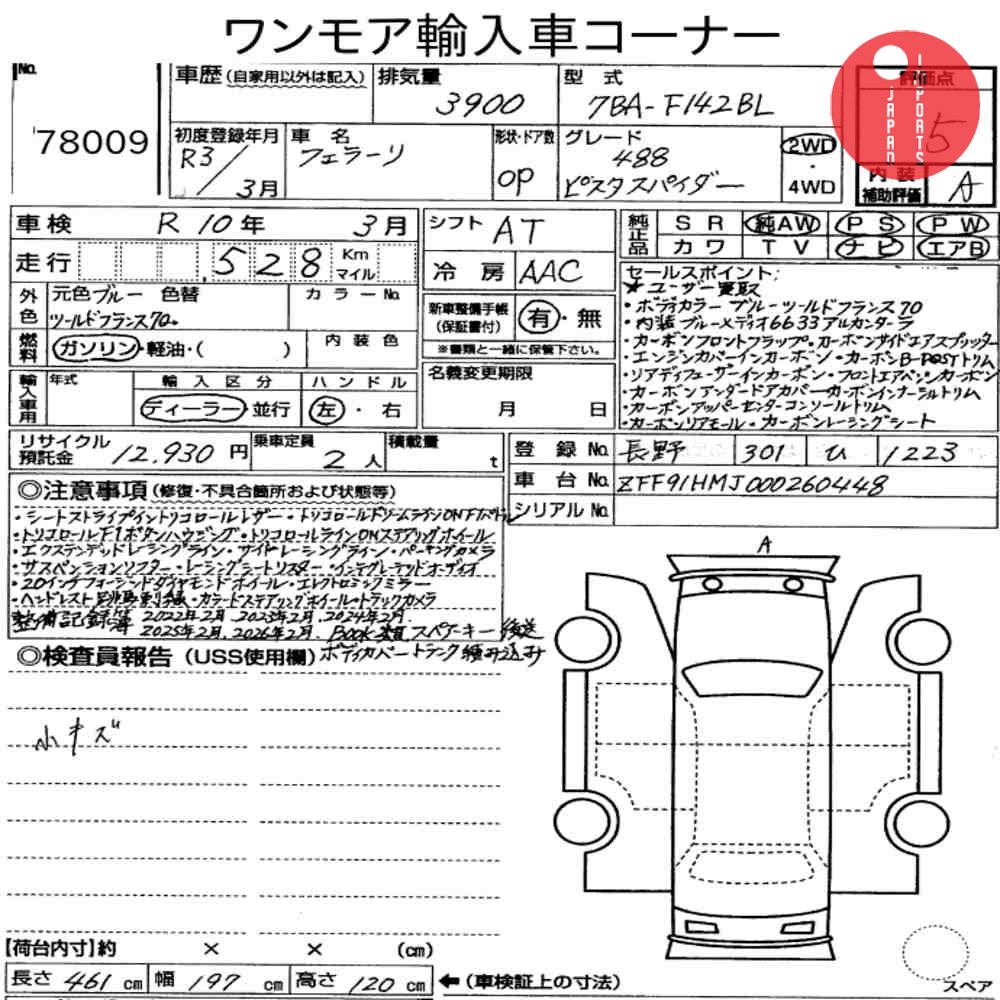 ワンモア輸入車コーナー
No.
78009
車歴(自家用以外は記入)
排気量
3900
型 式
7BA-F142BL
評価点
5
JAPAN
IMPORTS
初度登録年月
R3/3月
車 名
フェラーリ
形状・ドア数
OP
グレード
488
ピスタスパイダー
2WD
・
4WD
内 装
補助評価
A
車検 R 10年 3月
走行 528 Km
マイル
シフト AT
冷 房 AAC
純正品
SR 純AW PS PW
カワ TV ナビ エアB
外色
元色ブルー 色替
カラーNo.
ツールドフランス70.
新車整備手帳
(保証書付)
有・無
※書類と一緒に保管下さい。
燃料
ガソリン・軽油・( )
内 装 色
セールスポイント:
★ユーザー買取
・ボディカラー ブルーツールドフランス70
・内装ブルーメディオ6633アルカンターラ
・カーボンフロントフラップ・カーボンサイドエアスプリッター
・エンジンカバーインカーボン・カーボンB-POSTトリム
・リアディフューザーインカーボン・フロントエアベンツカーボン
・カーボンアンダードアカバーカーボンインナーシルトリム
・カーボンアッパーセンターコンソールトリム
・カーボンリアモール・カーボンレーシングシート
輸入車用
年式
輸 入 区 分
ディーラー・並行
ハ ン ド ル
左・右
名義変更期限
月 日
リサイクル
預託金
12.930 円
乗車定員
2人
積載量
t
登 録 No. 長野 301 ひ 1223
車 台 No. ZFF91HMJ000260448
シリアル No.
◎注意事項(修復・不具合箇所および状態等)
・シートストライプイントリコロールレザー・トリコロールドリームラインON
・トリコロールF1ボタンハウジング・トリコロールラインONステアリングホイール
・エクステンデッドレーシングライン・サイドレーシングライン・パーキングカメラ
・サスペンションリフター・レーシングシートリフター・インテグレーテッドオーディオ
・20インチフォージドダイヤモンドホイール・エレクトロミックミラー
・ヘッドレスト跳馬刺繍・カラードステアリングホイール・トラックカメラ
整備記録簿 2022年2月、2023年2月、2024年2月、
2025年2月、2026年2月、Book類スペアーキー後送
ボディカバートランク積み込み
◎検査員報告(USS使用欄)
小キズ
A
【荷台内寸】約 × × (cm)
長さ 461 cm 幅 197 cm 高さ 120 cm ←(車検証上の寸法)
スペア